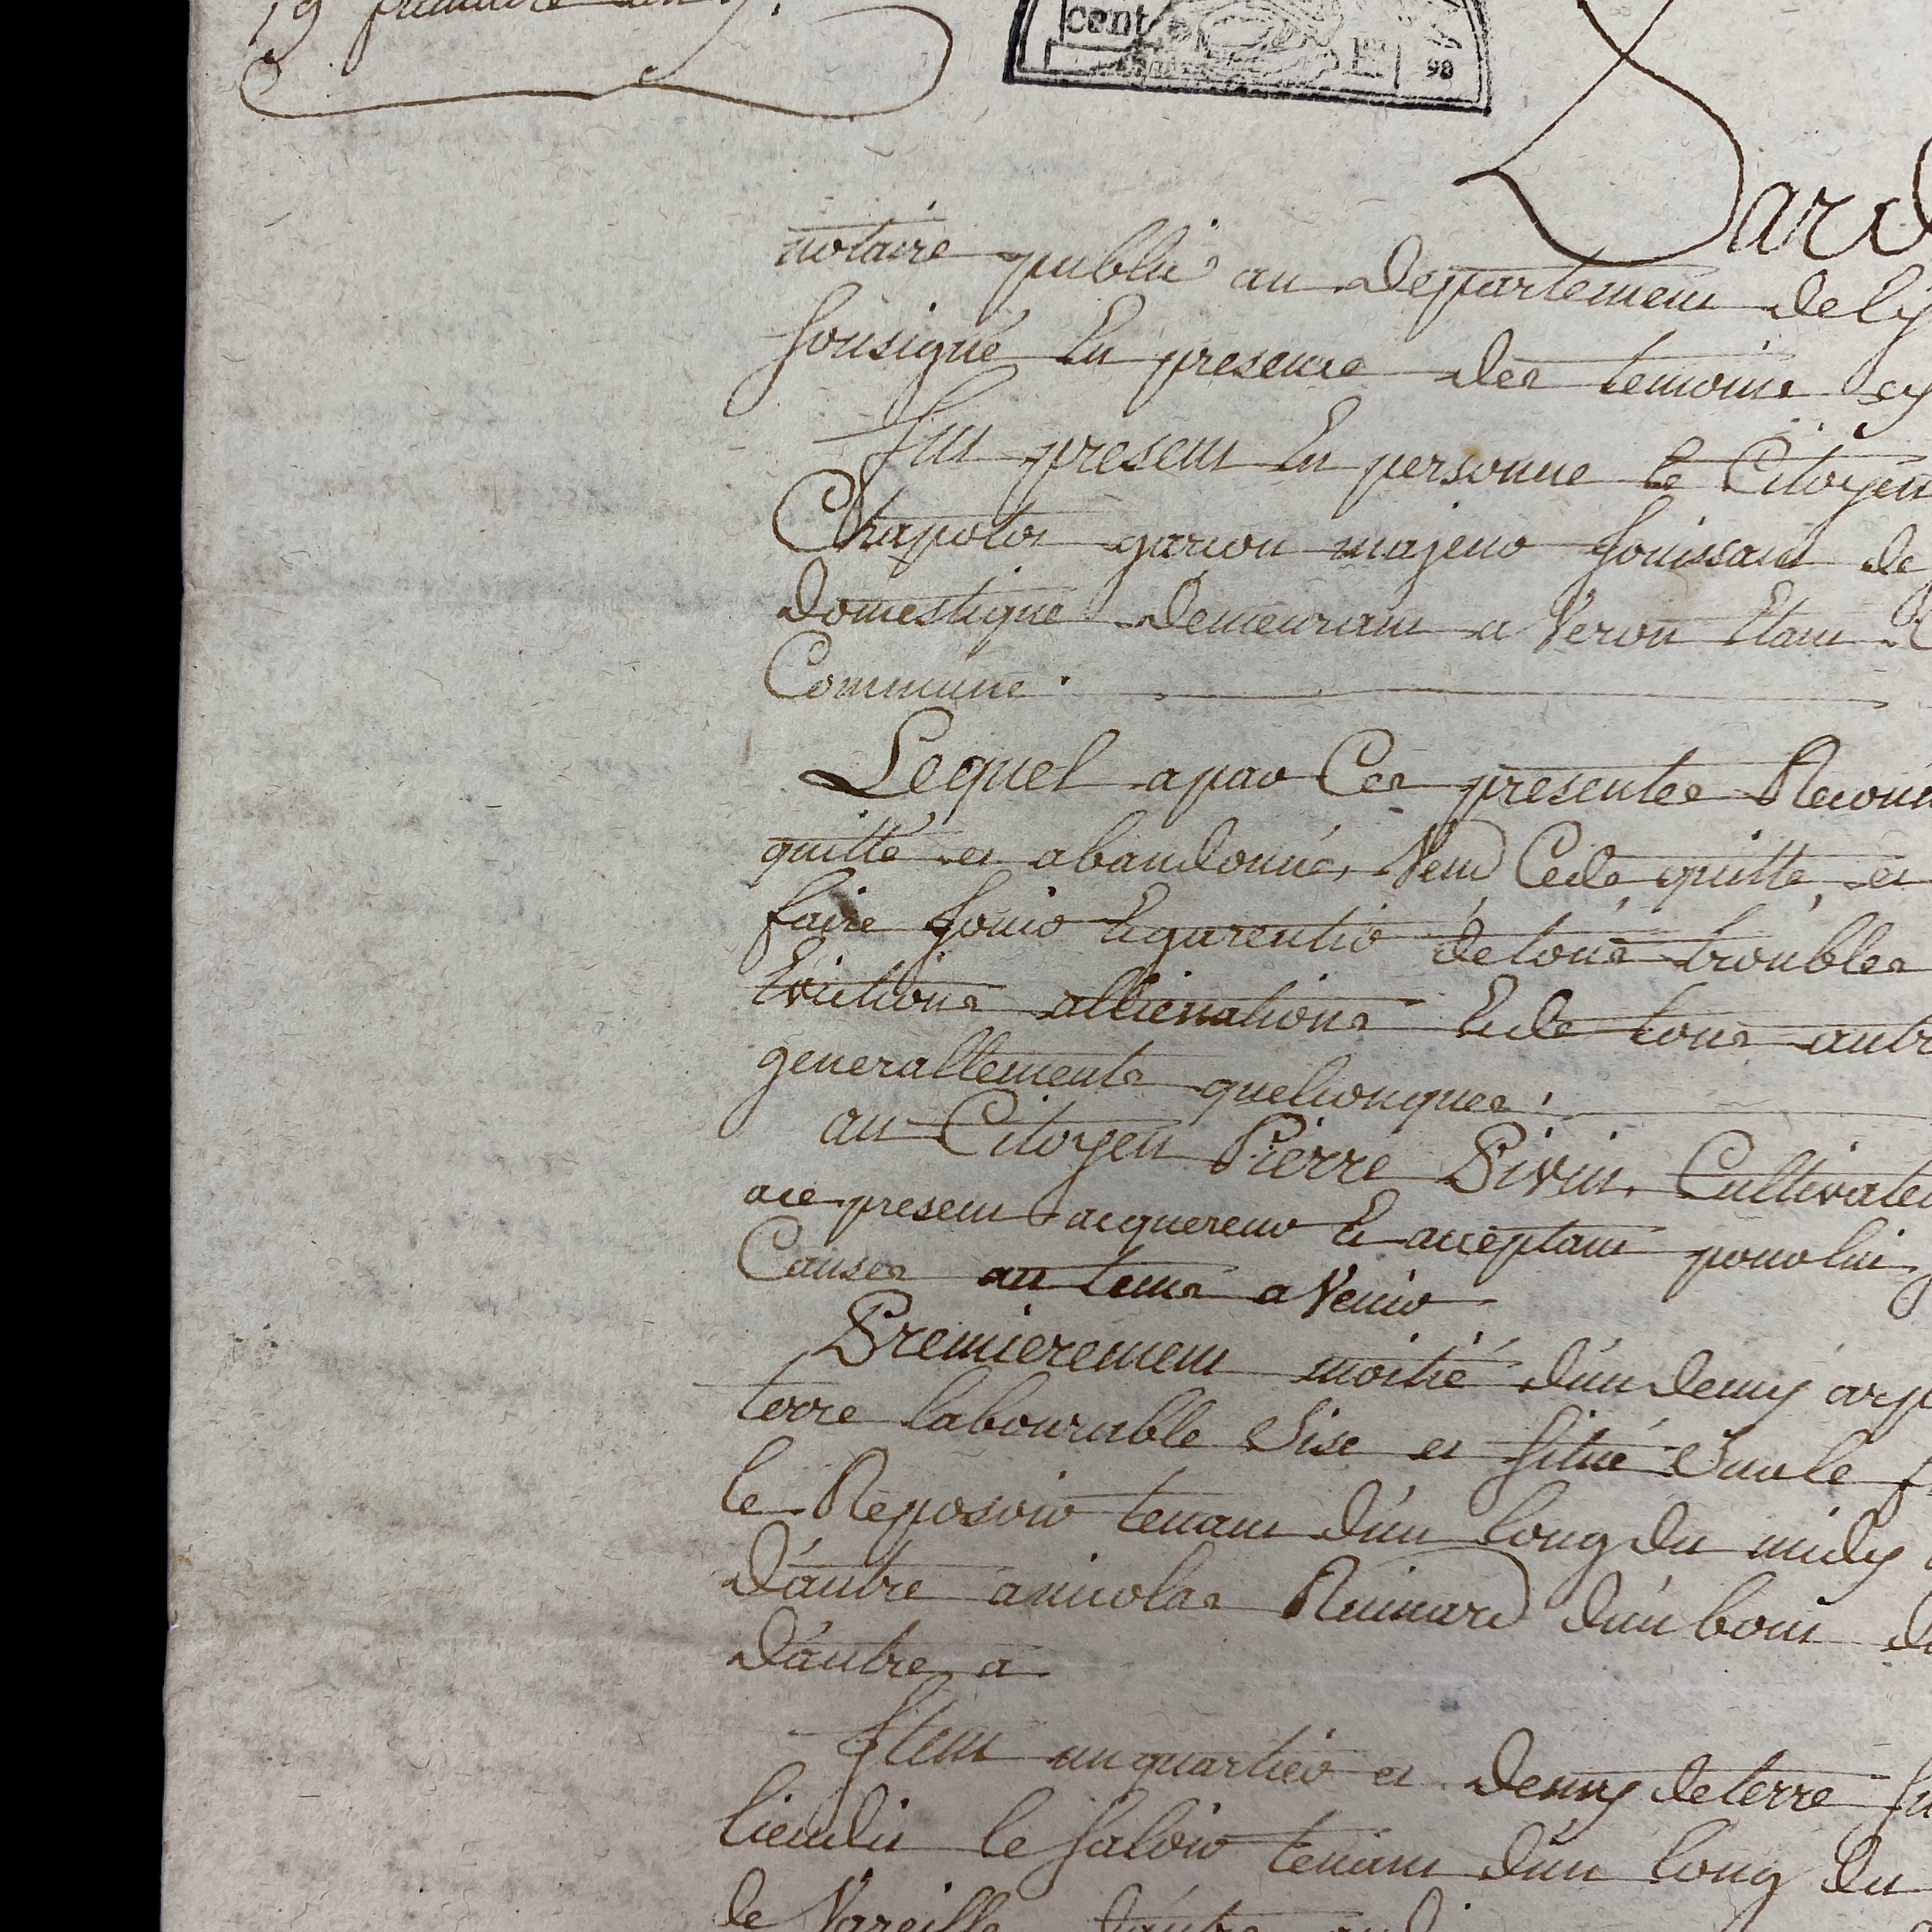 19
cent
98
Pard
notaire public au Departement de l'y
sousigné En presence des temoins cy
fut present En personne le Citoyen
Chapotot garcon majeur Jouissant de
domestique demeurant a Veron Etant
Commune.
Lequel a par Ces presentes Reconn
quitté et abandonné, Vend Cede quitte et
faire Jouir Et garentir de tous troubles
Evictions allienations Et de tous autr
generallements quelconques.
au Citoyen Pierre Pivin, Cultivate
a ce present acquereur Et acceptant pour lui
Causes au tems a Venir
Premierement moitié d'un demy arp
terre labourable Sise et situé Sur le f
le Reposoir tenant d'un long du midy
D'autre a nicolas Ruinard d'un bout d
D'autre a
Item un quartier et demy de terre su
lieudit le saloir tenant d'un long du
de Vareille d'autre